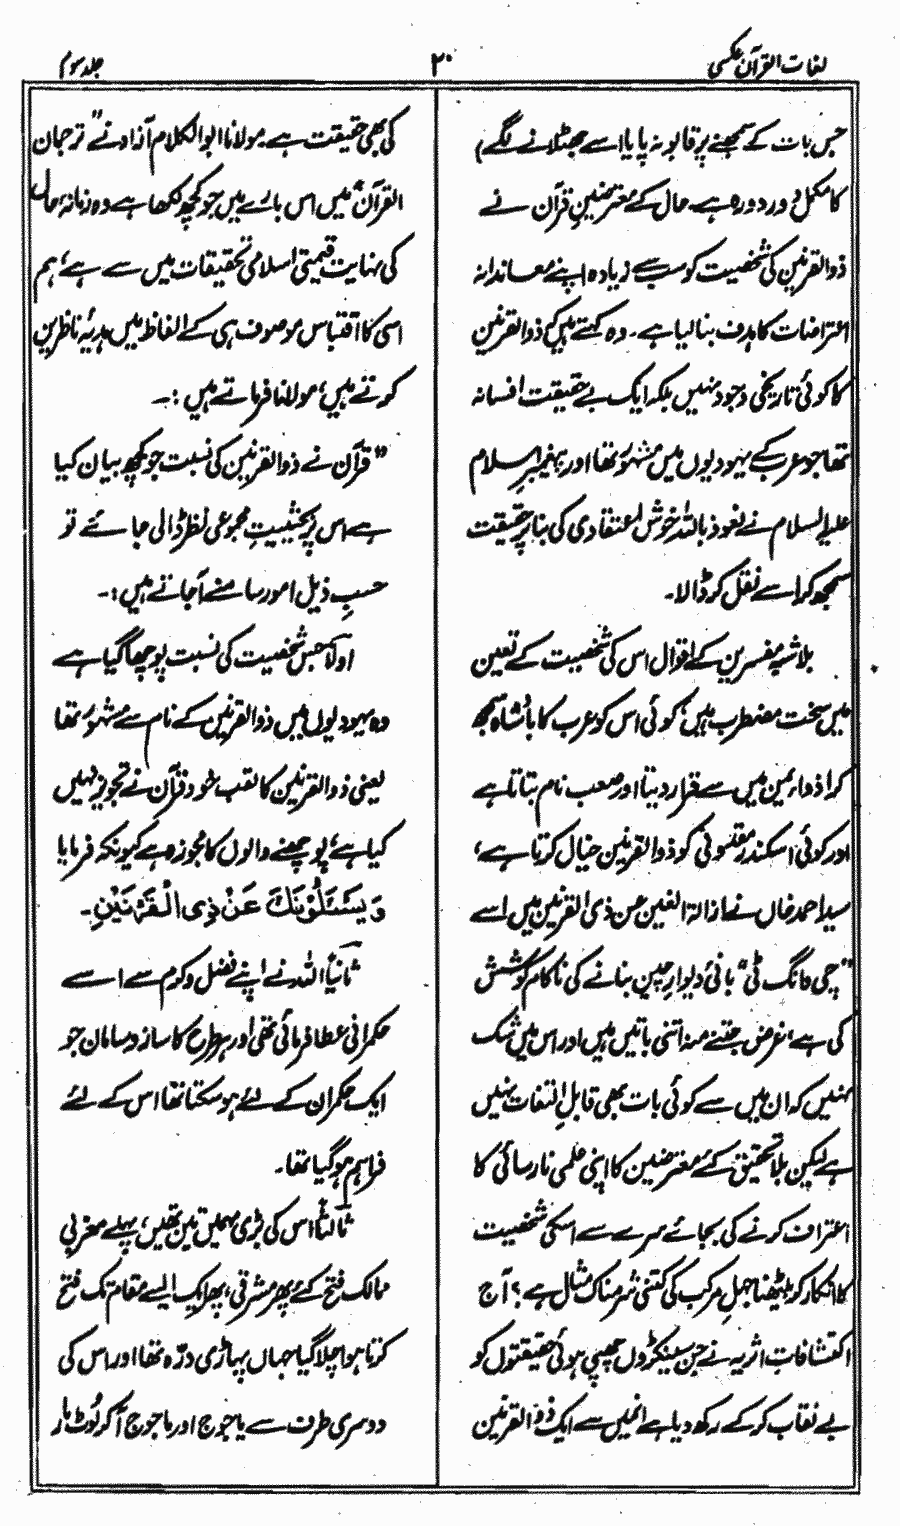 لغات القرآن عکسی
۲۰
جلد سوم
جس بات کے سمجھنے پر قابو نہ پایا اسے جھٹلانے لگے)
کا مکمل دور دورہ ہے۔ حال کے معترضینِ قرآن نے
ذوالقرنین کی شخصیت کو سب سے زیادہ اپنے معاندانہ
اعتراضات کا ہدف بنا لیا ہے۔ وہ کہتے ہیں کہ ذوالقرنین
کا کوئی تاریخی وجود نہیں بلکہ ایک بے حقیقت افسانہ
تھا جو عرب کے یہودیوں میں مشہور تھا اور پیغمبرِ اسلام
علیہ السلام نے نعوذ باللہ خوش اعتقادی کی بنا پر حقیقت
سمجھ کر اسے نقل کر ڈالا۔
بلا شبہ مفسرین کے اقوال اس کی شخصیت کے تعین
میں سخت مضطرب ہیں، کوئی اس کو عرب کا بادشاہ سمجھ
کر اذواء یمن میں سے قرار دیتا اور صعب نام بتاتا ہے
اور کوئی اسکندر مقدونی کو ذوالقرنین خیال کرتا ہے،
سید احمد خاں نے ازالۃ الغین عن ذی القرنین میں اسے
"چی وانگ ٹی" بانیٔ دیوارِ چین بنانے کی ناکام کوشش
کی ہے۔ غرض جتنے منہ اتنی باتیں ہیں اور اس میں شک
نہیں کہ ان میں سے کوئی بات بھی قابلِ التفات نہیں
ہے لیکن بلا تحقیق کئے معترضین کا اپنی علمی نارسائی کا
اعتراف کرنے کی بجائے سرے سے اسکی شخصیت
کا انکار کر بیٹھنا جہلِ مرکب کی کتنی شرمناک مثال ہے؟ آج
اکتشافاتِ اثریہ نے جن سینکڑوں چھپی ہوئی حقیقتوں کو
بے نقاب کر کے رکھ دیا ہے انہیں سے ایک ذوالقرنین
کی بھی حقیقت ہے۔ مولانا ابوالکلام آزاد نے "ترجمان
القرآن" میں اس بارے میں جو کچھ لکھا ہے وہ زمانۂ حال
کی نہایت قیمتی اسلامی تحقیقات میں سے ہے، ہم
اسی کا اقتباس موصوف ہی کے الفاظ میں ہدیۂ ناظرین
کرتے ہیں، مولانا فرماتے ہیں :۔
"قرآن نے ذوالقرنین کی نسبت جو کچھ بیان کیا
ہے اس پر بحیثیتِ مجموعی نظر ڈالی جائے تو
حسبِ ذیل امور سامنے آجاتے ہیں :۔
اولاً جس شخصیت کی نسبت پوچھا گیا ہے
وہ یہودیوں میں ذوالقرنین کے نام سے مشہور تھا
یعنی ذوالقرنین کا لقب خود قرآن نے تجویز نہیں
کیا ہے، پوچھنے والوں کا مجوزہ ہے کیونکہ فرمایا
وَیَسْئَلُوْنَكَ عَنْ ذِی الْقَرْنَیْنِ۔
ثانیاً اللہ نے اپنے فضل و کرم سے اسے
حکمرانی عطا فرمائی تھی اور ہر طرح کا ساز و سامان جو
ایک حکمران کے لئے ہو سکتا تھا اس کے لئے
فراہم ہو گیا تھا۔
ثالثاً اس کی بڑی مہمیں تین تھیں، پہلے مغربی
ممالک فتح کئے پھر مشرقی، پھر ایک ایسے مقام تک فتح
کرتا ہوا چلا گیا جہاں پہاڑی درّہ تھا اور اس کی
دوسری طرف سے یاجوج اور ماجوج آ کر لوٹ مار